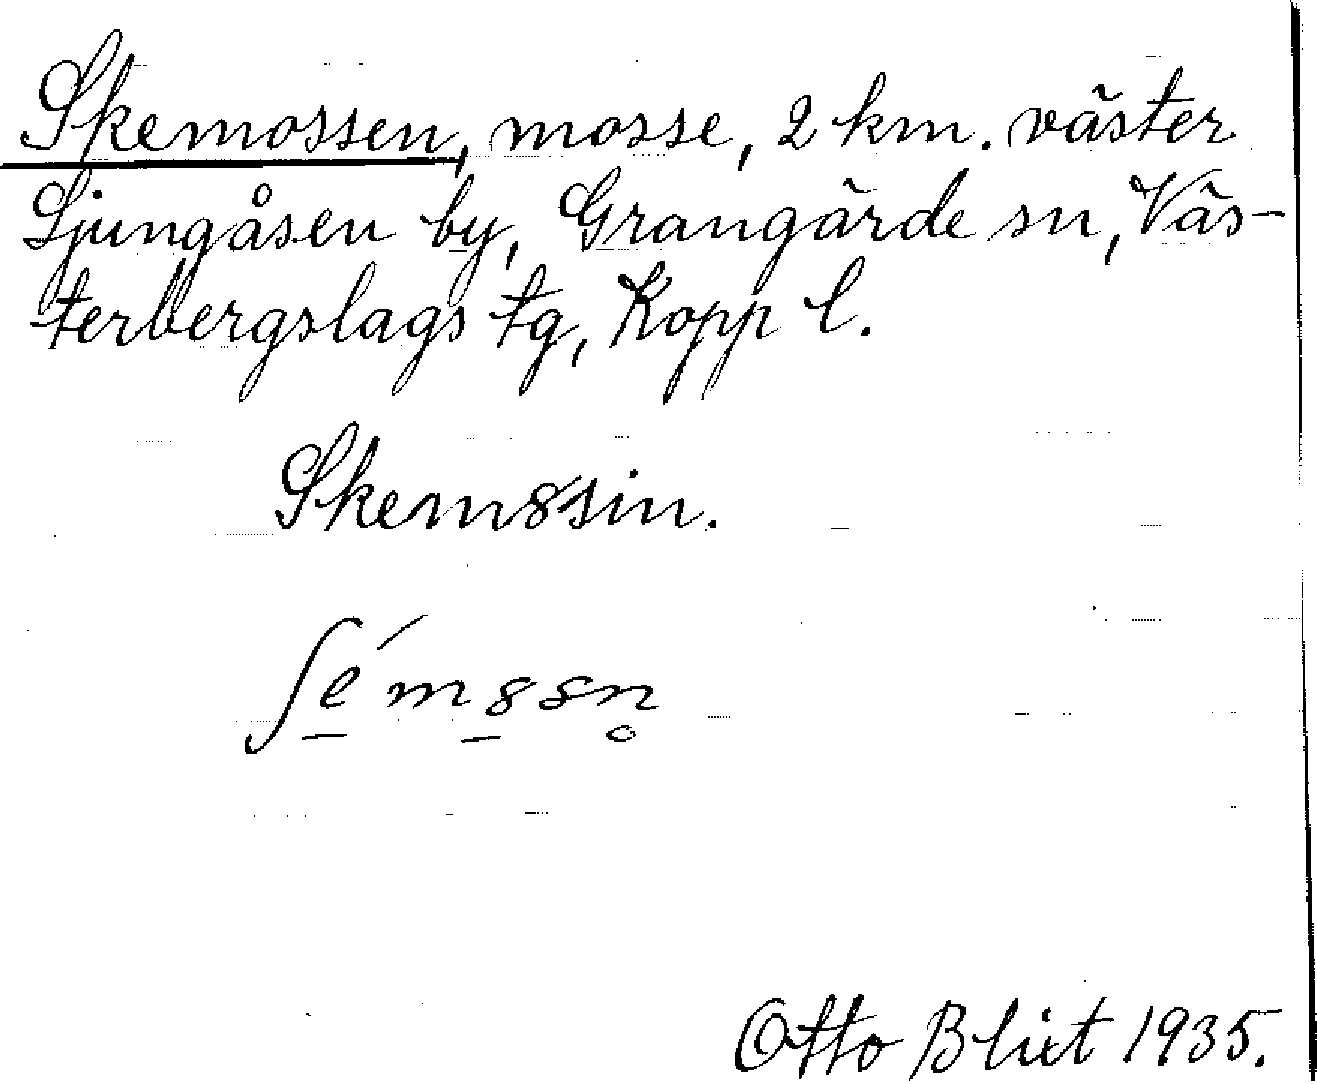 Skemossen, mosse, 2 km. väster
Ljungåsen by, Grangärde sn, Väs-
terbergslags tg, Kopp l.
Skem8sin.
ʃe̱´m8̱sn̥
Otto Blixt 1935.